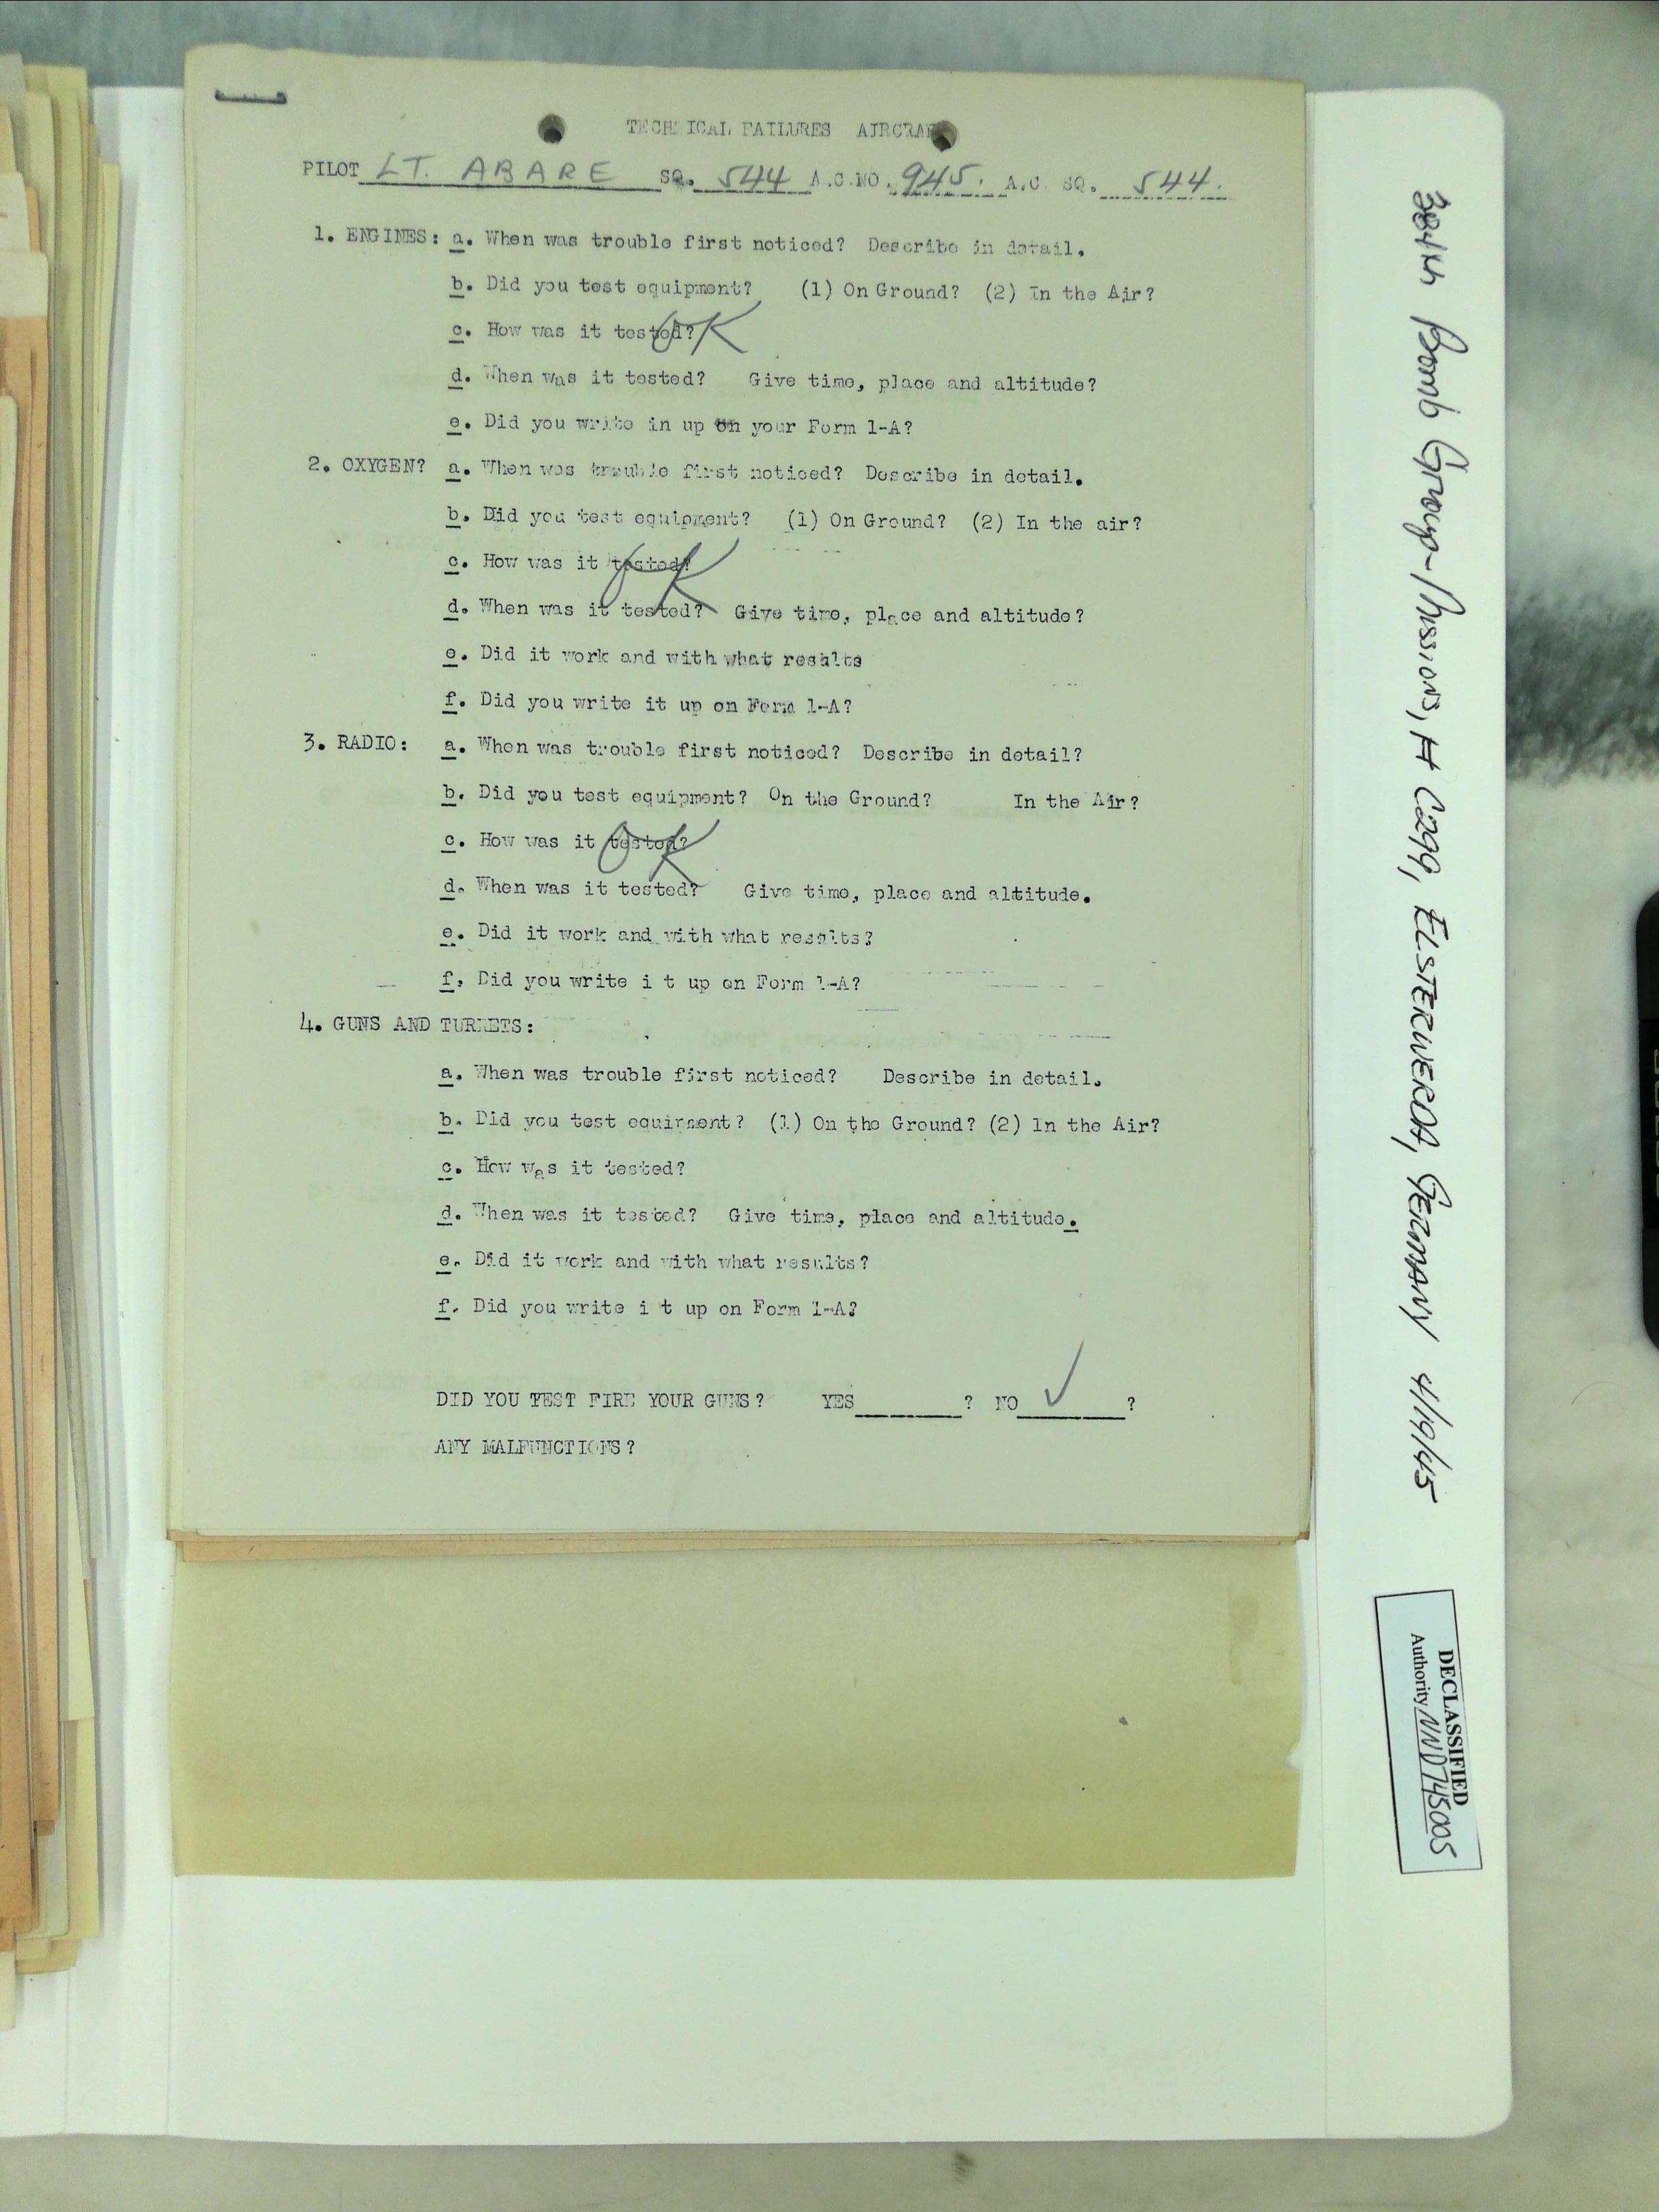 TECHNICAL FAILURES AIRCRAF
PILOT LT. ABARE SQ. 544 A.C.NO. 945. A.C. SQ. 544.
1. ENGINES: a. When was trouble first noticed? Describe in detail.
b. Did you test equipment? (1) On Ground? (2) In the Air?
c. How was it tested? OK
d. When was it tested? Give time, place and altitude?
e. Did you write in up on your Form 1-A?
2. OXYGEN? a. When was trouble first noticed? Describe in detail.
b. Did you test equipment? (1) On Ground? (2) In the air?
c. How was it tested? OK
d. When was it tested? Give time, place and altitude?
e. Did it work and with what results
f. Did you write it up on Form 1-A?
3. RADIO: a. When was trouble first noticed? Describe in detail?
b. Did you test equipment? On the Ground? In the Air?
c. How was it tested? OK
d. When was it tested? Give time, place and altitude.
e. Did it work and with what results?
f. Did you write i t up on Form 1-A?
4. GUNS AND TURRETS:
a. When was trouble first noticed? Describe in detail.
b. Did you test equipment? (1) On the Ground? (2) In the Air?
c. How was it tested?
d. When was it tested? Give time, place and altitude.
e. Did it work and with what results?
f. Did you write i t up on Form 1-A?
DID YOU TEST FIRE YOUR GUNS? YES ? NO ✓ ?
ANY MALFUNCTIONS?
384th Bomb Group-Missions, # C299, ELSTERWERDA, GERMANY 4/19/45
DECLASSIFIED
Authority NND745005